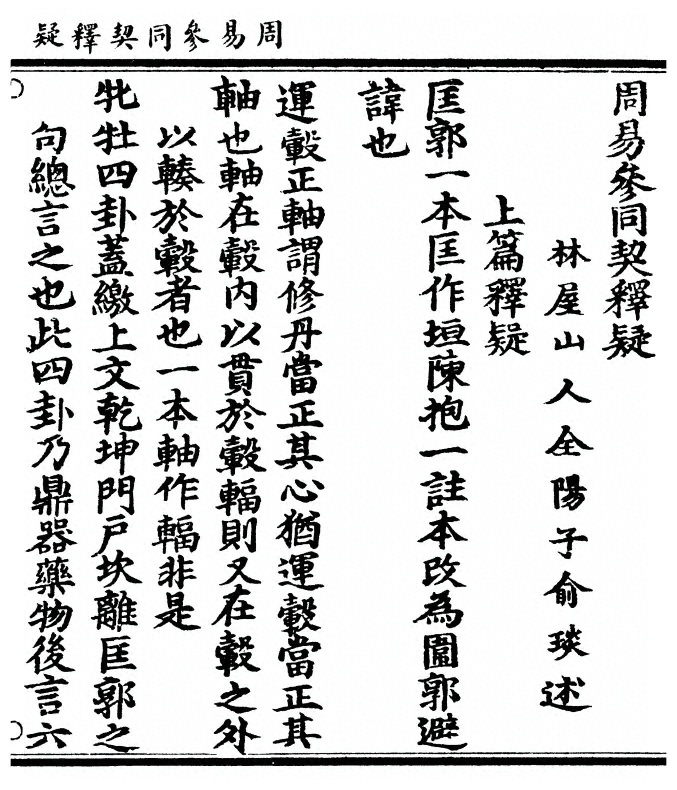 周易參同契釋疑
周易參同契釋疑
林屋山人全陽子俞琰述
上篇釋疑
匡郭一本匡作垣陳抱一註本改為圁郭避
諱也
運轂正軸謂修丹當正其心猶運轂當正其
軸也軸在轂內以貫於轂輻則又在轂之外
以輳於轂者也一本軸作輻非是
牝牡四卦蓋繳上文乾坤門戶坎離匡郭之
句總言之也此四卦乃鼎器藥物後言六